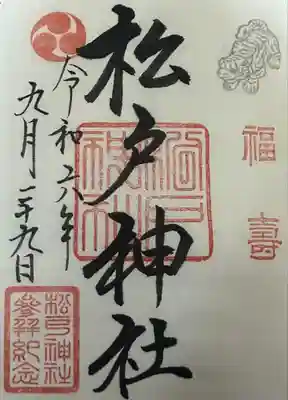 福壽
松戸神社
松戸
神社
令和六年
九月二十九日
松戸神社
參拜紀念